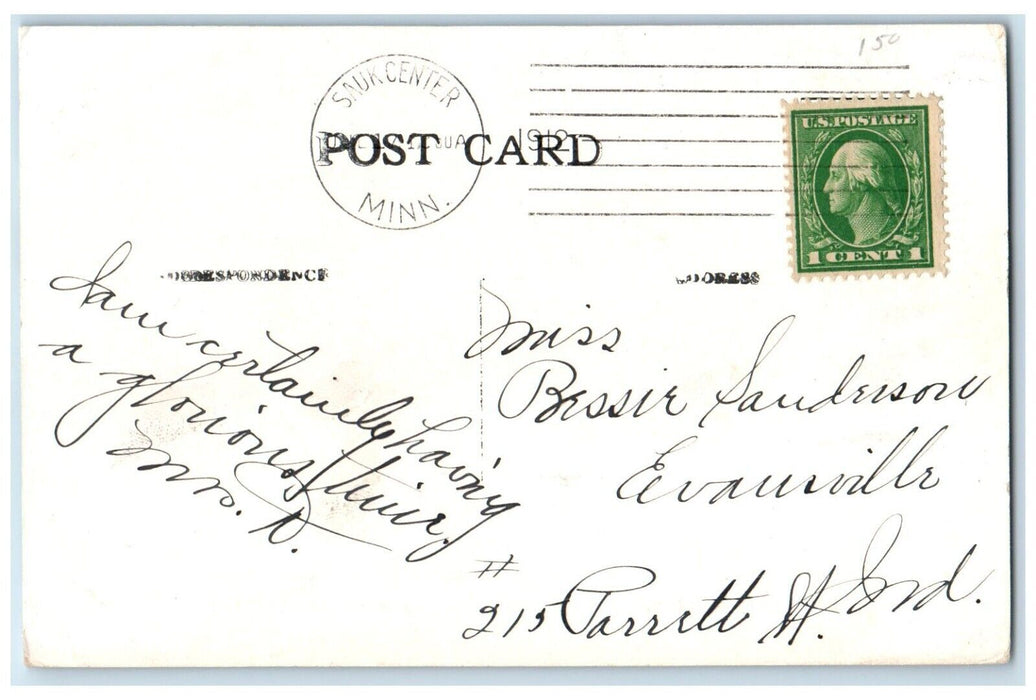 150
SAUK CENTER
1912
MINN.
POST CARD
U.S. POSTAGE
1 CENT 1
CORRESPONDENCE
ADDRESS
I am certainly having
a glorious time.
Mrs. D.
Miss
Bessie Sanderson
Evansville
Ind.
#
215 Parrett St.